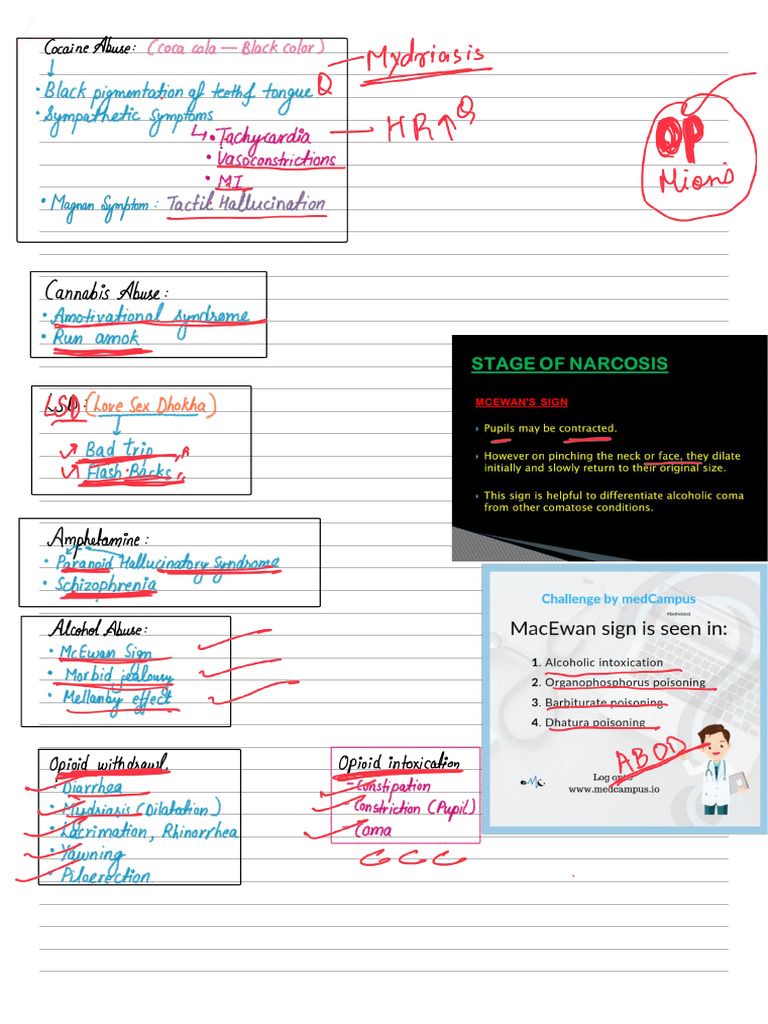 Cocaine Abuse: (coca cola — Black color)
Mydriasis
• Black pigmentation of teeth & tongue
• Sympathetic symptoms
↳ • Tachycardia — HR↑
• Vasoconstrictions
• MI
• Magnan Symptom: Tactil Hallucination
OP
Miosis
Cannabis Abuse:
• Amotivational syndrome
• Run amok
LSD: (Love Sex Dhokha)
Bad trip
Flash Backs
STAGE OF NARCOSIS
MCEWAN'S SIGN
Pupils may be contracted.
However on pinching the neck or face, they dilate
initially and slowly return to their original size.
This sign is helpful to differentiate alcoholic coma
from other comatose conditions.
Amphetamine:
• Paranoid Hallucinatory Syndrome
• Schizophrenia
Alcohol Abuse:
• McEwan Sign
• Morbid jealousy
• Mellanby effect
Challenge by medCampus
MacEwan sign is seen in:
1. Alcoholic intoxication
2. Organophosphorus poisoning
3. Barbiturate poisoning
4. Dhatura poisoning
ABOD
Log onto
www.medcampus.io
Opioid withdrawl
• Diarrhea
• Mydriasis (Dilatation)
• Lacrimation, Rhinorrhea
• Yawning
• Piloerection
Opioid intoxication
- Constipation
Constriction (Pupil)
Coma
C C C